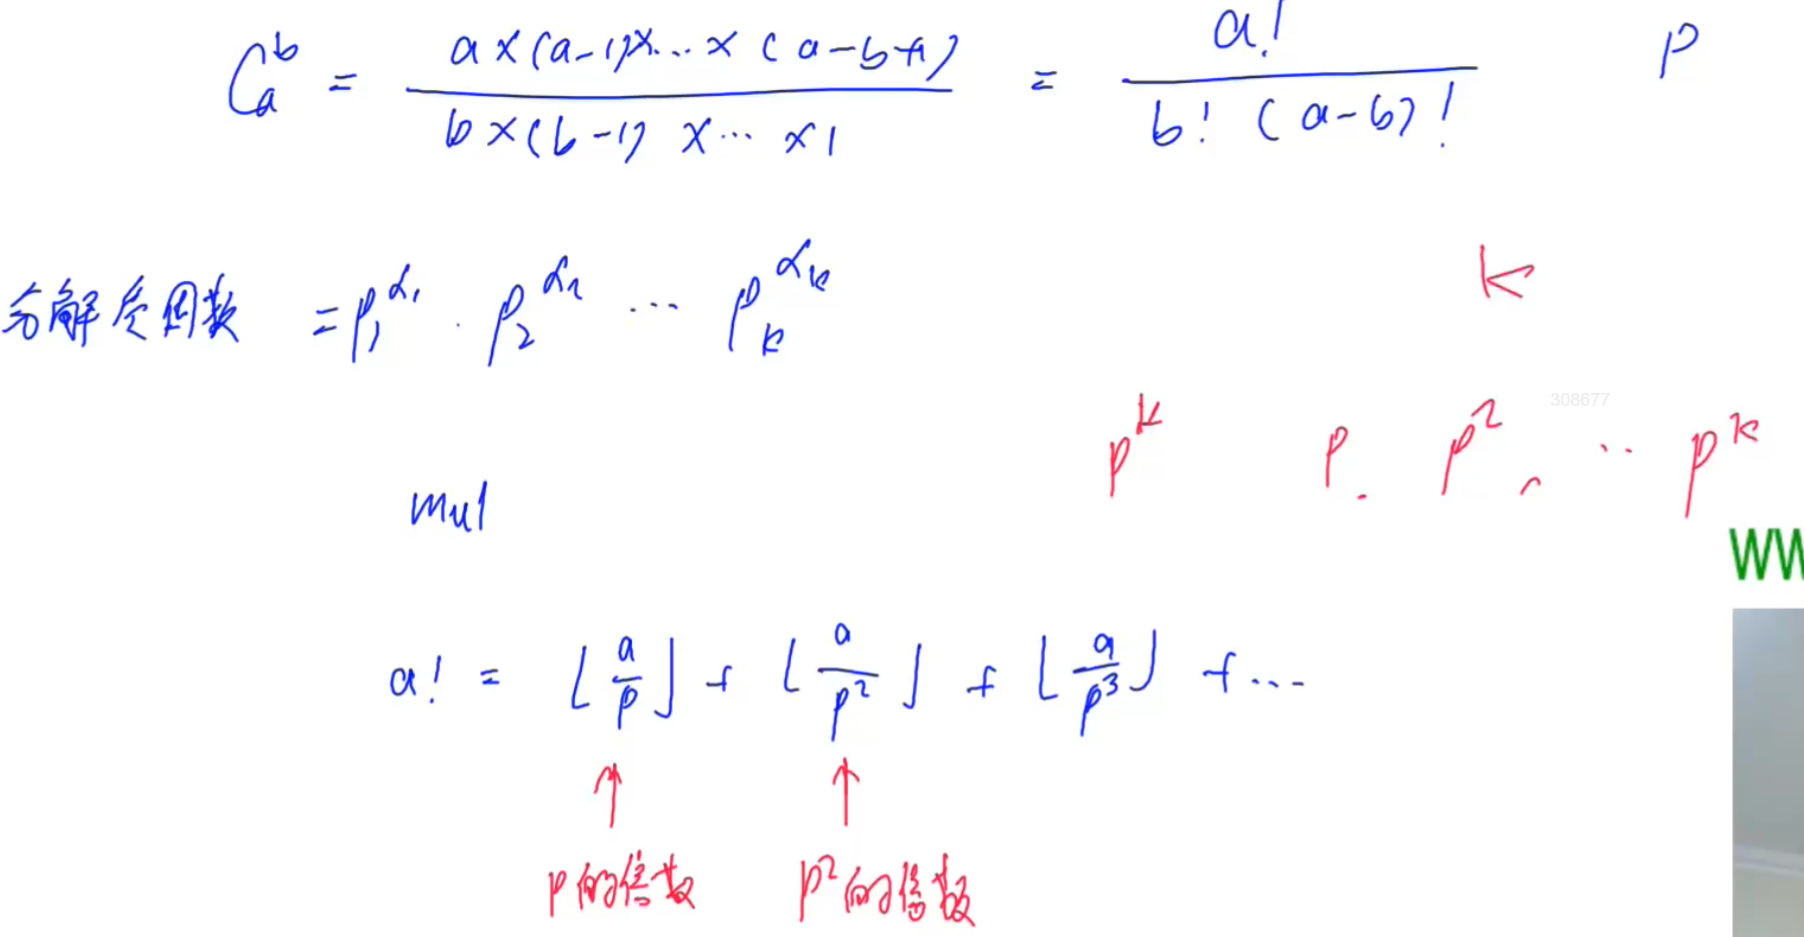 C_a^b = \frac{a×(a-1)×…×(a-b+1)}{b×(b-1)×…×1} = \frac{a!}{b!(a-b)!} P
分解质因数 = p_1^{α_1} · p_2^{α_2} … p_k^{α_k}
k
308677
p^k p. p^2, … p^k
mul
WW
a! = ⌊\frac{a}{p}⌋ + ⌊\frac{a}{p^2}⌋ + ⌊\frac{a}{p^3}⌋ + …
↑ ↑
p的倍数 p^2的倍数